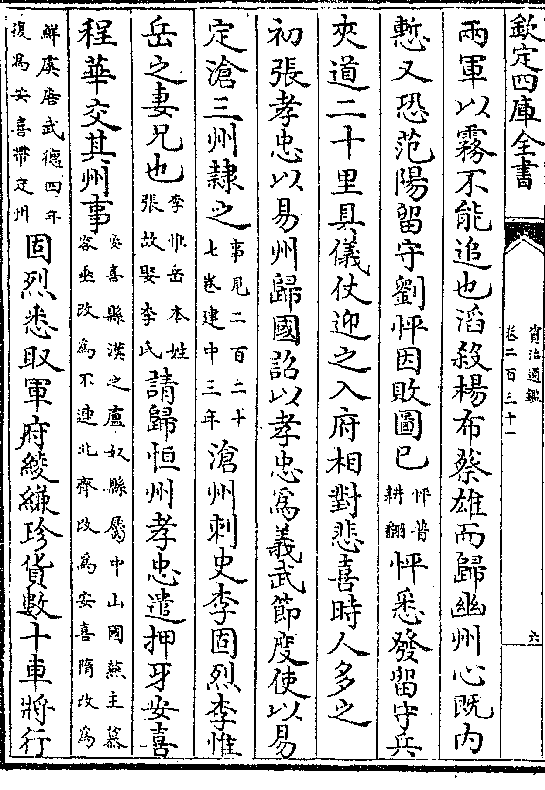 欽定四庫全書
資治通鑑
卷二百三十一
六
兩軍以霧不能追也滔殺楊布蔡雄而歸幽州心既内
慙又恐范陽留守劉怦因敗圖已怦普耕翻怦悉發留守兵
夾道二十里具儀仗迎之入府相對悲喜時人多之
初張孝忠以易州歸國詔以孝忠為義武節度使以易
定滄三州隸之事見二百二十七卷建中三年滄州刺史李固烈李惟
岳之妻兄也李惟岳本姓張故娶李氏請歸恒州孝忠遣押牙安喜
程華交其州事安喜縣漢之盧奴縣屬中山國燕主慕容垂改為不連北齊改為安喜隋改為
鮮虞唐武德四年復為安喜帶定州固烈悉取軍府綾縑珍貨數十車將行